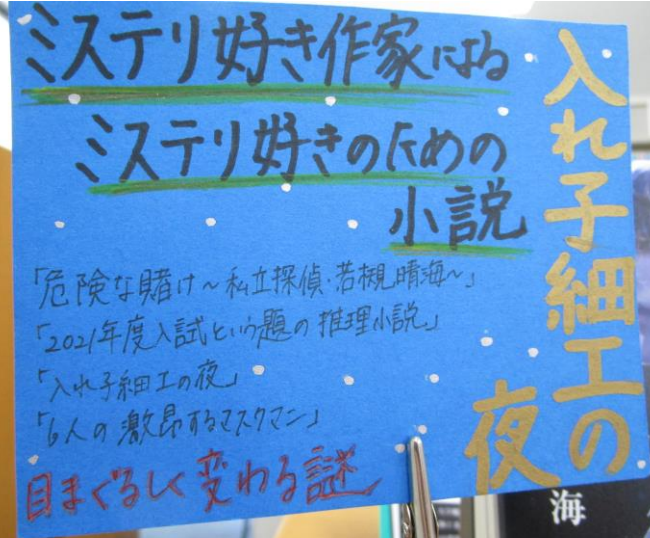 ミステリ好き作家による
ミステリ好きのための
小説
入れ子細工の
夜
「危険な賭け～私立探偵・若槻晴海～」
「2021年度入試という題の推理小説」
「入れ子細工の夜」
「6人の激昂するマスクマン」
目まぐるしく変わる謎
海